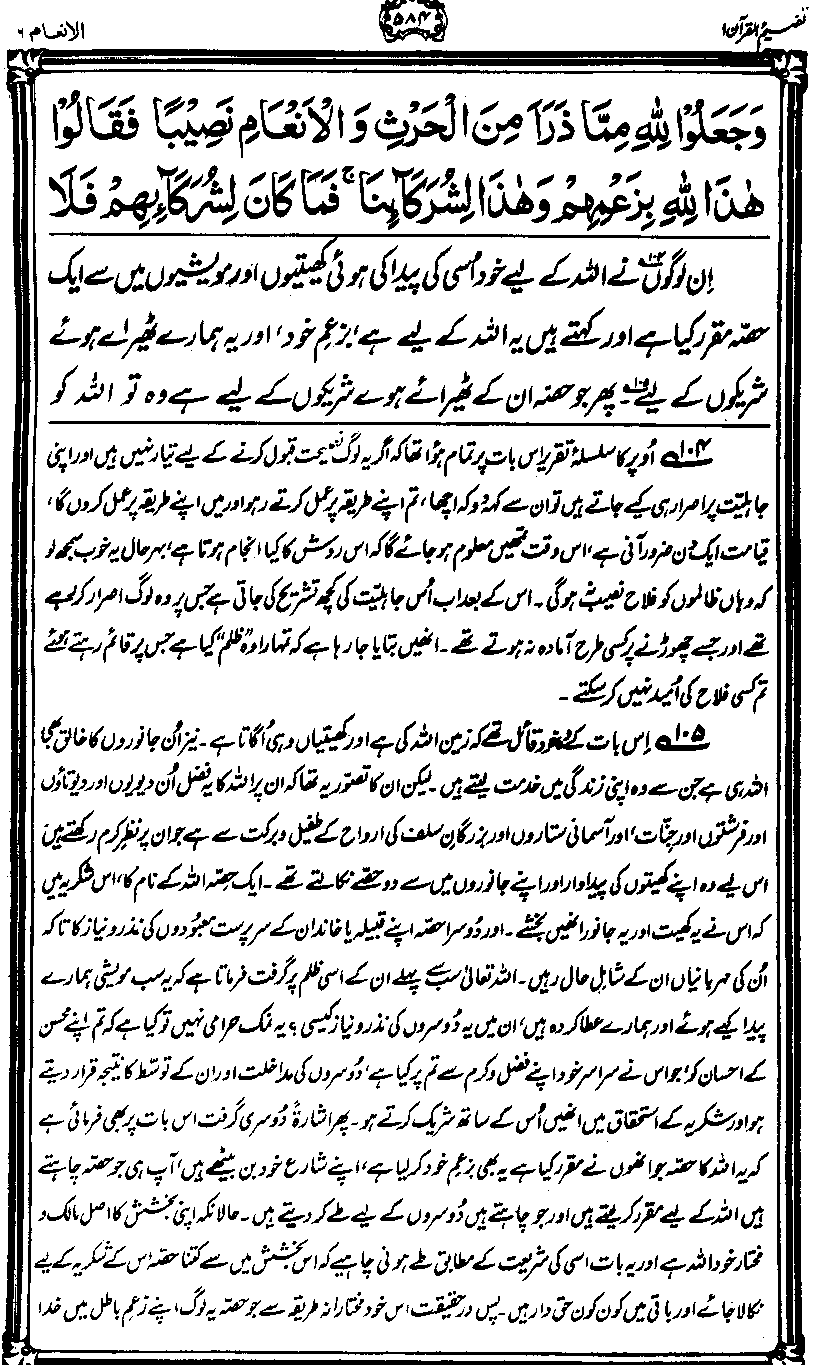 تفہیم القرآن ۱
۵۸۴
الانعام ۶
وَجَعَلُوْا لِلّٰهِ مِمَّا ذَرَاَ مِنَ الْحَرْثِ وَالْاَنْعَامِ نَصِيْبًا فَقَالُوْا
هٰذَا لِلّٰهِ بِزَعْمِهِمْ وَهٰذَا لِشُرَكَآىِٕنَا ۚ فَمَا كَانَ لِشُرَكَآىِٕهِمْ فَلَا
اِن لوگوں۱۰۴ نے اللہ کے لیے خود اُسی کی پیدا کی ہوئی کھیتیوں اور مویشیوں میں سے ایک
حصّہ مقرر کیا ہے اور کہتے ہیں یہ اللہ کے لیے ہے، بزعمِ خود، اور یہ ہمارے ٹھیرائے ہوئے
شریکوں کے لیے۱۰۵۔ پھر جو حصّہ ان کے ٹھیرائے ہوے شریکوں کے لیے ہے وہ تو اللہ کو
۱۰۴ اُوپر کا سلسلۂ تقریر اِس بات پر تمام ہؤا تھا کہ اگر یہ لوگ نصیحت قبول کرنے کے لیے تیار نہیں ہیں اور اپنی
جاہلیّت پر اصرار ہی کیے جاتے ہیں تو ان سے کہہ دو کہ اچھا، تم اپنے طریقہ پر عمل کرتے رہو اور میں اپنے طریقہ پر عمل کروں گا،
قیامت ایک دن ضرور آنی ہے، اس وقت تمھیں معلوم ہو جائے گا کہ اس روش کا کیا انجام ہوتا ہے، بہرحال یہ خوب سمجھ لو
کہ وہاں ظالموں کو فلاح نصیب نہ ہوگی۔ اس کے بعد اب اُس جاہلیّت کی کچھ تشریح کی جاتی ہے جس پر وہ لوگ اصرار کر رہے
تھے اور جسے چھوڑنے پر کسی طرح آمادہ نہ ہوتے تھے۔ انھیں بتایا جا رہا ہے کہ تمہارا وہ ”ظلم“ کیا ہے جس پر قائم رہتے ہوئے
تم کسی فلاح کی اُمید نہیں کر سکتے۔
۱۰۵ اِس بات کے وہ خود قائل تھے کہ زمین اللہ کی ہے اور کھیتیاں وہی اُگاتا ہے۔ نیز اُن جانوروں کا خالق بھی
اللہ ہی ہے جن سے وہ اپنی زندگی میں خدمت لیتے ہیں۔ لیکن ان کا تصوّر یہ تھا کہ ان پر اللہ کا یہ فضل اُن دیویوں اور دیوتاؤں
اور فرشتوں اور جنّات، اور آسمانی ستاروں اور بزرگانِ سلف کی ارواح کے طفیل و برکت سے ہے جو ان پر نظرِ کرم رکھتے ہیں
اس لیے وہ اپنے کھیتوں کی پیداوار اور اپنے جانوروں میں سے دو حصّے نکالتے تھے۔ ایک حصّہ اللہ کے نام کا، اس شکریہ میں
کہ اس نے یہ کھیت اور یہ جانور انھیں بخشے۔ اور دُوسرا حصّہ اپنے قبیلہ یا خاندان کے سرپرست معبُودوں کی نذر و نیاز کا تاکہ
اُن کی مہربانیاں ان کے شاملِ حال رہیں۔ اللہ تعالیٰ سب سے پہلے ان کے اسی ظلم پر گرفت فرماتا ہے کہ یہ سب مویشی ہمارے
پیدا کیے ہوئے اور ہمارے عطا کردہ ہیں، ان میں یہ دُوسروں کی نذر و نیاز کیسی؟ یہ نمک حرامی نہیں تو کیا ہے کہ تم اپنے محسن
کے احسان کو، جو اس نے سراسر خود اپنے فضل و کرم سے تم پر کیا ہے، دُوسروں کی مداخلت اور ان کے توسّط کا نتیجہ قرار دیتے
ہو اور شکریہ کے استحقاق میں انھیں اُس کے ساتھ شریک کرتے ہو۔ پھر اشارۃً دُوسری گرفت اس بات پر بھی فرمائی ہے
کہ یہ اللہ کا حصّہ جو انھوں نے مقرر کیا ہے یہ بھی بزعمِ خود کر لیا ہے، اپنے شارع خود بن بیٹھے ہیں، آپ ہی جو حصّہ چاہتے
ہیں اللہ کے لیے مقرر کر لیتے ہیں اور جو چاہتے ہیں دُوسروں کے لیے طے کر دیتے ہیں۔ حالانکہ اپنی بخشش کا اصل مالک و
مختار خود اللہ ہے اور یہ بات اسی کی شریعت کے مطابق طے ہونی چاہیے کہ اس بخشش میں سے کتنا حصّہ اس کے شکریہ کے لیے
نکالا جائے اور باقی میں کون کون حق دار ہیں۔ پس درحقیقت اس خود مختارانہ طریقہ سے جو حصّہ یہ لوگ اپنے زعمِ باطل میں خدا